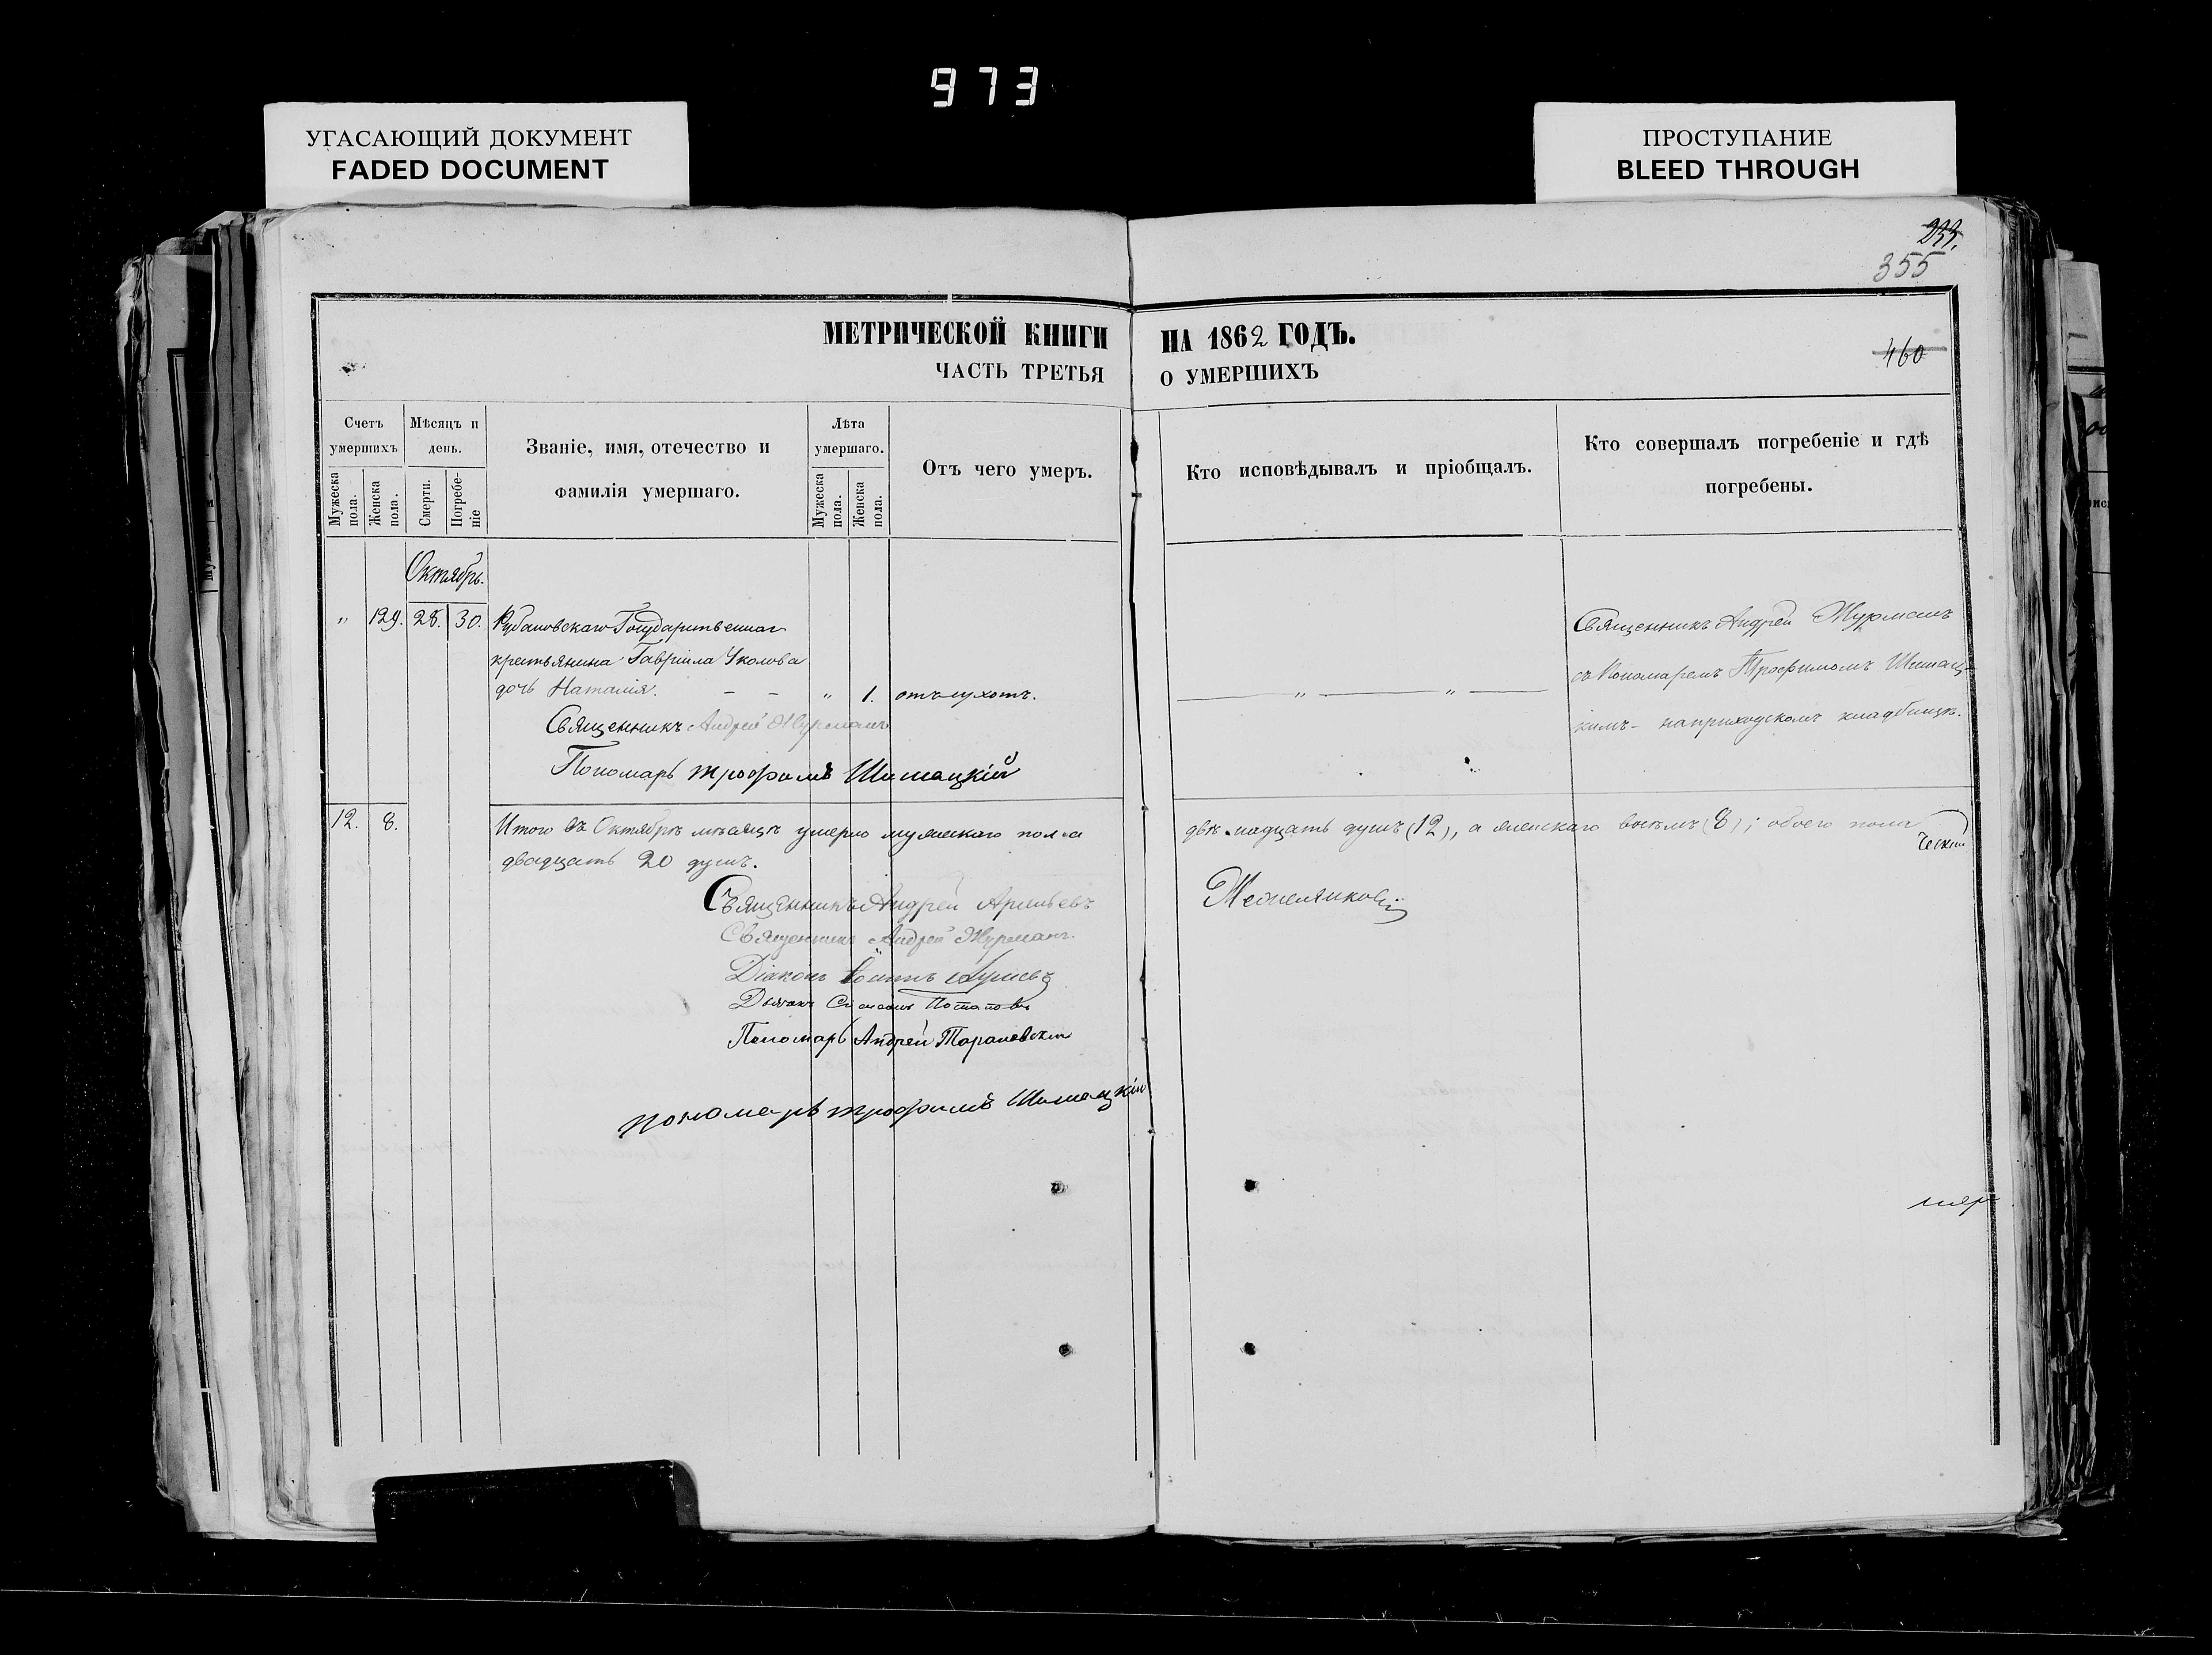 973
УГАСАЮЩИЙ ДОКУМЕНТ
FADED DOCUMENT
ПРОСТУПАНИЕ
BLEED THROUGH
233.
355
460
МЕТРИЧЕСКОЙ КНИГИ НА 1862 ГОДЪ.
ЧАСТЬ ТРЕТЬЯ О УМЕРШИХЪ
Счетъ умершихъ
Мужеска пола.
Женска пола.
Мѣсяцъ и день.
Смерти.
Погребеніе
Званіе, имя, отечество и
фамилія умершаго.
Лѣта умершаго.
Мужеска пола.
Женска пола.
Отъ чего умеръ.
Кто исповѣдывалъ и пріобщалъ.
Кто совершалъ погребеніе и гдѣ
погребены.
Октябрь.
„ 129. 28. 30. Рубановскаго Государственнаго
крестьянина Гавріила Уколова
дочь Наталія. – – „ 1. отъ сухотъ. „ „
Священникъ Андрей Журманъ
съ Пономаремъ Трофимомъ Шимац-
кимъ - на приходскомъ кладбищѣ.
Священникъ Андрей Журманъ
Пономарь Трофимъ Шимацкій
12. 8. Итого въ Октябрѣ мѣсяцѣ умерло мужескаго пола двѣнадцать душъ (12), а женскаго восемь (8); обоего пола
двадцать 20 душъ.
Священникъ Андрей
Священникъ Андрей Журманъ.
Діаконъ
Дьячекъ Потаповъ
Пономарь Андрей Тарановскій
пономарь трофимъ Шимацкій